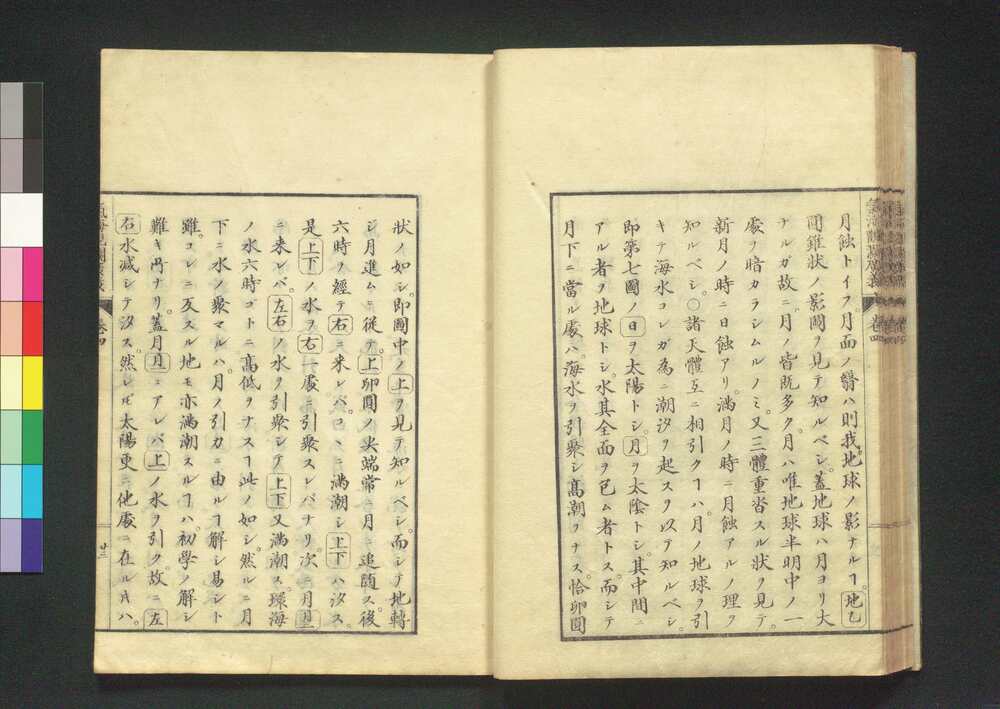 月蝕トイフ。月面ノ翳ハ則我地球ノ影ナルヿ。地乙
圓錐狀ノ影闊ヲ見テ知ルベシ。蓋地球ハ月ヨリ大
ナルガ故ニ。月ノ皆既多ク。月ハ唯地球半明中ノ一
處ヲ暗カラシムルノミ。又三體重沓スル狀ヲ見テ。
新月ノ時ニ日蝕アリ。滿月ノ時ニ月蝕アルノ理ヲ
知ルベシ。○諸天體互ニ相引クヿハ。月ノ地球ヲ引
キテ海水コレガ為ニ潮汐ヲ起スヲ以テ知ルベシ。
即第七圖ノ日ヲ太陽トシ。月ヲ太陰トシ。其中間ニ
アル者ヲ地球トシ。水其全面ヲ包ム者トス。而シテ
月下ニ當ル處ハ。海水ヲ引聚シ高潮ヲナス。恰卵圓
狀ノ如シ。即圖中ノ上ヲ見テ知ルベシ。而シテ地轉
シ月進ムニ從テ。上卯圓ノ尖端常ニ月ニ追隨ス。後
六時ヲ經テ右ニ来レバ。コヽニ滿潮シ上下ハ汐ス。
是上下ノ水ヲ右ニ處ニ引聚スレバナリ。次ニ月
ニ来レバ。左右ノ水ヲ引聚シテ上下又滿潮ス。環海
ノ水六時ゴトニ高低ヲナスヿ此ノ如シ。然ルニ月
下ニ水ノ聚マルハ。月ノ引力ニ由ルヿ解シ易シト
雖。コレニ反スル地モ亦滿潮スルヿハ。初學ノ解シ
難キ所ナリ。蓋月ニアレバ上ノ水ヲ引ク故ニ左
右水減シテ汐ス。然レ𪜈太陽更ニ他處ニ在ル𪜈ハ。
卷四
廿三
卷四